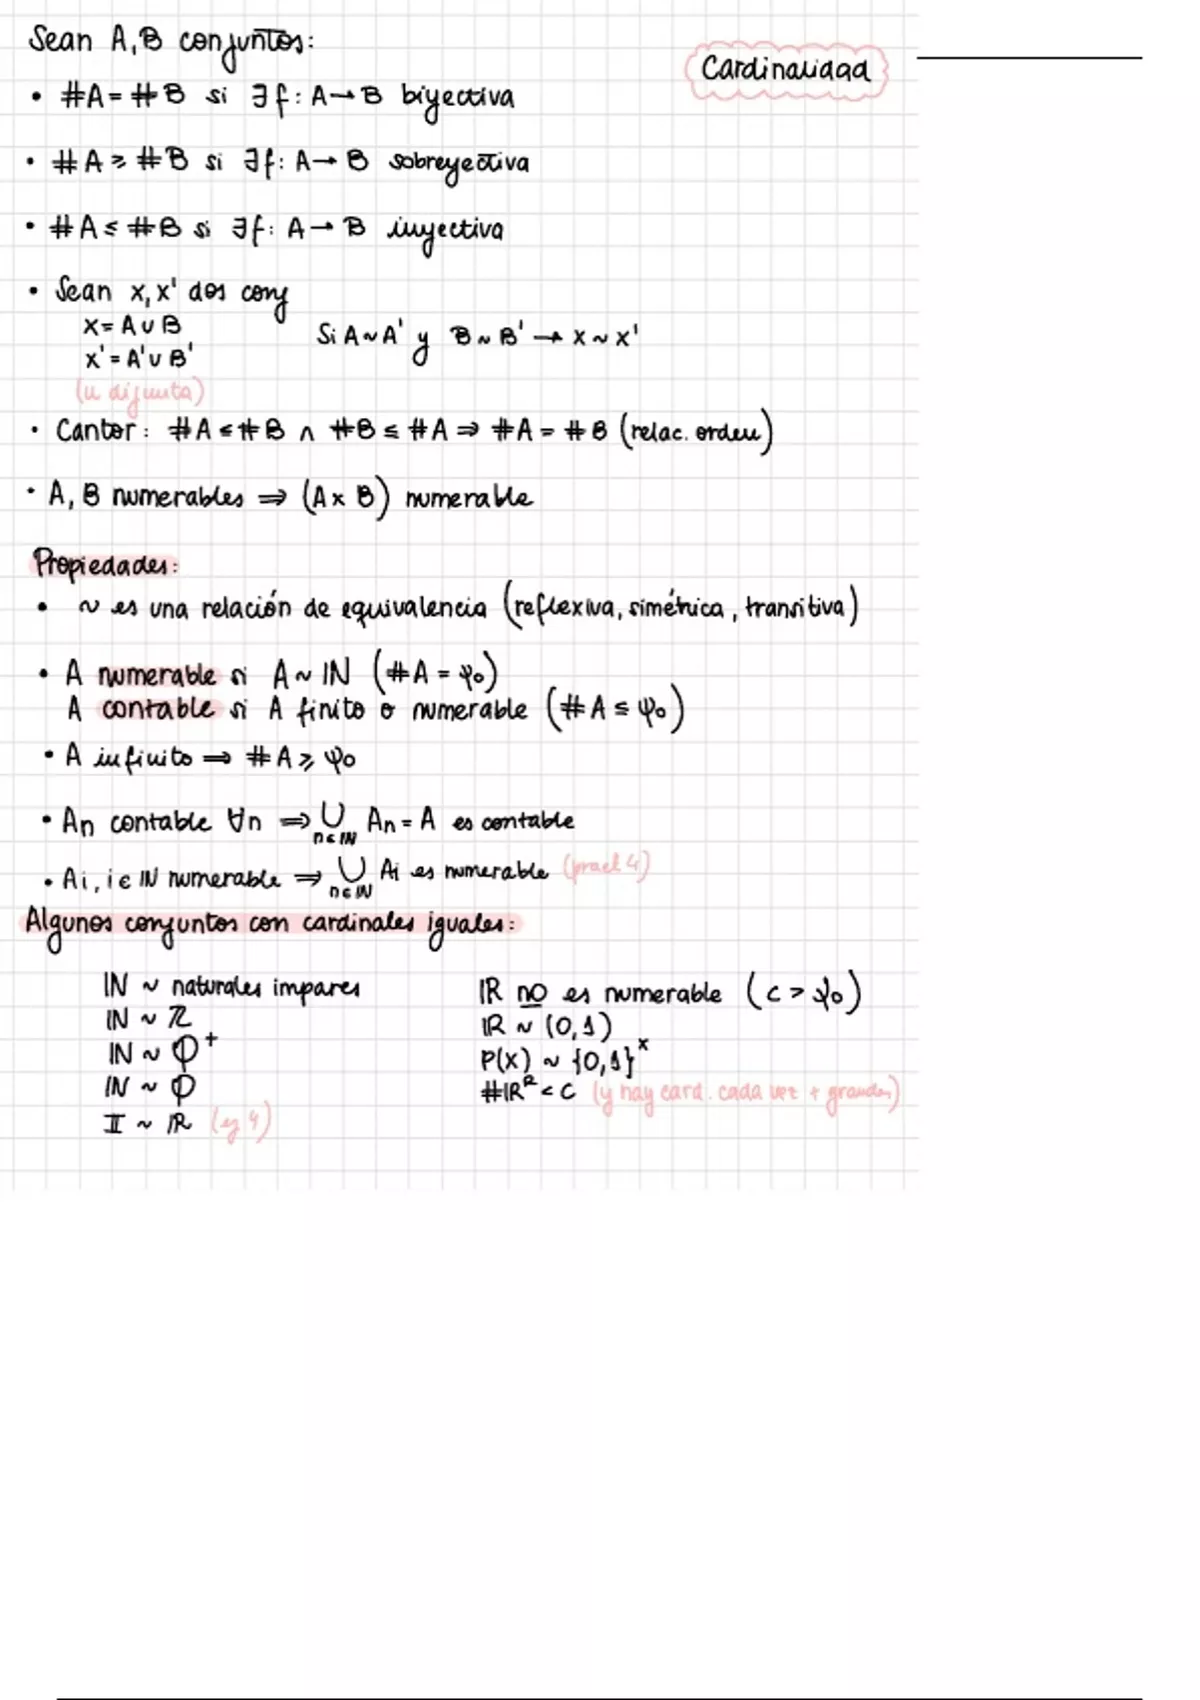 Sean A, B conjuntos:
Cardinalidad
• #A = #B si ∃ f: A → B biyectiva
• #A ≥ #B si ∃ f: A → B sobreyectiva
• #A ≤ #B si ∃ f: A → B inyectiva
• Sean x, x' dos conj
X = A ∪ B
x' = A' ∪ B'
Si A ~ A' y B ~ B' → x ~ x'
(u disjunta)
• Cantor: #A ≤ #B ∧ #B ≤ #A ⇒ #A = #B (relac. orden)
• A, B numerables ⇒ (A x B) numerable
Propiedades:
• ~ es una relación de equivalencia (reflexiva, simétrica, transitiva)
• A numerable si A ~ ℕ (#A = ψ₀)
A contable si A finito o numerable (#A ≤ ψ₀)
• A infinito ⇒ #A ≥ ψ₀
• An contable ∀n ⇒ ⋃ n∈ℕ An = A es contable
• Ai, i ∈ ℕ numerable ⇒ ⋃ n∈ℕ Ai es numerable (pract 4)
Algunos conjuntos con cardinales iguales:
ℕ ~ naturales impares
ℕ ~ ℤ
ℕ ~ ℚ⁺
ℕ ~ ℚ
𝕀 ~ ℝ (ej 4)
ℝ no es numerable (c > ψ₀)
ℝ ~ (0,1)
P(x) ~ {0,1}ˣ
#ℝ^ℝ < c (y hay card. cada vez + grandes)